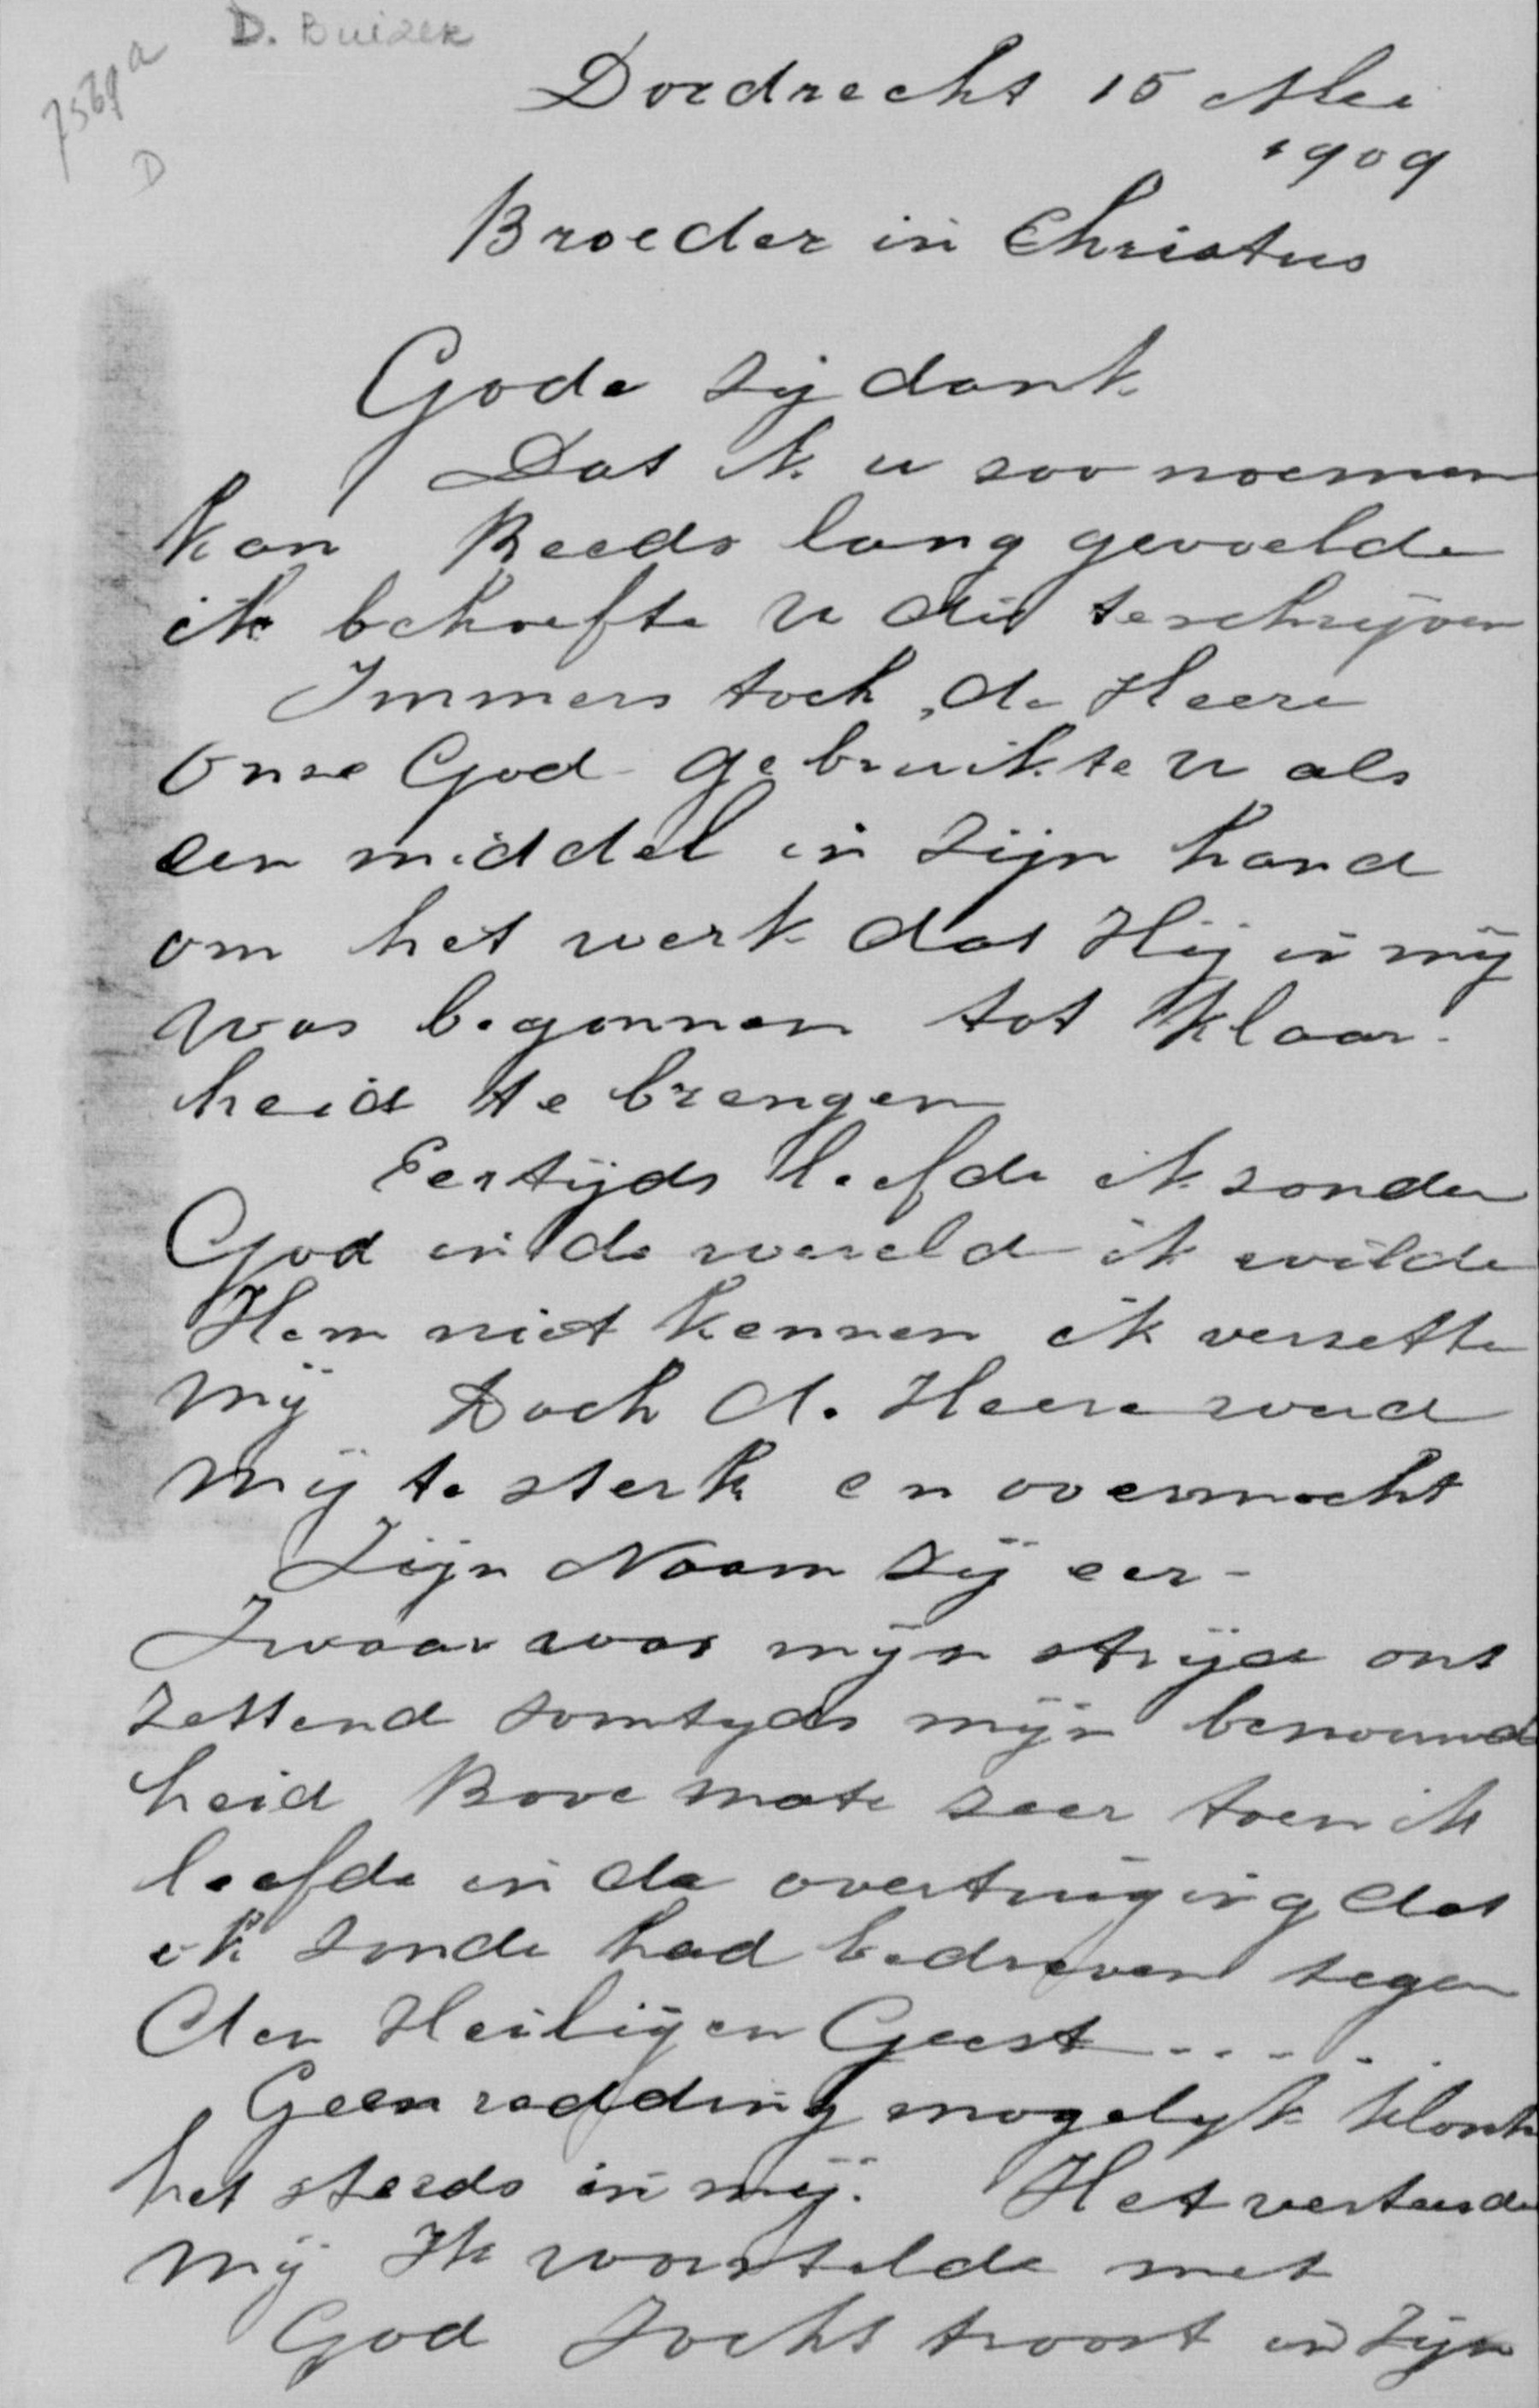 D. Buizer
7569a
D
Dordrecht 15 Mei
1909
Broeder in Christus
Gode zij dank
Dat ik u zoo noemen
kan Reeds lang gevoelde
ik behoefte u dit te schrijven
Immers toch, de Heere
onze God gebruikte u als
een middel in Zijn hand
om het werk dat Hij in mij
was begonnen tot klaar-
heid te brengen
Eertijds leefde ik zonder
God in de wereld ik wilde
Hem niet kennen ik verzette
mij Doch de Heere werd
mij te sterk en overmocht
Zijn Naam zij eer-
Zwaar was mijn strijd ont
zettend somtyds mijn benauwd
heid Bove mate zeer toen ik
leefde in de overtuiging dat
ik zonde had bedreven tegen
den Heiligen Geest......
Geen redding mogelyk klonk
het steeds in mij. Het verteerde
mij Ik worstelde met
God Zocht troost in Zijn